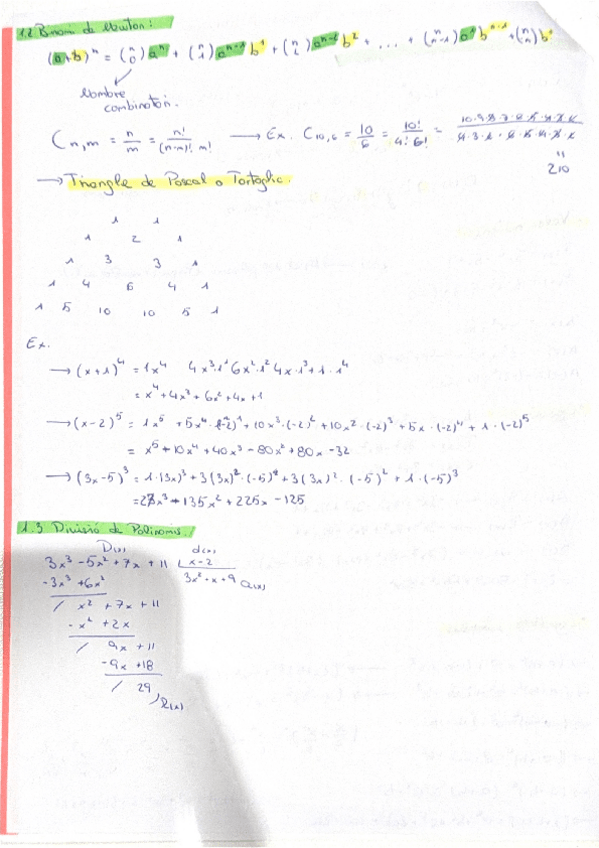 1.2 Binomi de Newton:
(a+b)ⁿ = (n 0)aⁿ + (n 1)aⁿ⁻¹b¹ + (n 2)aⁿ⁻²b² + ... + (n n-1)a¹bⁿ⁻¹ + (n n)bⁿ
Nombre
combinatori.
C n,m = n/m = n!/(n-m)! m! → Ex. C 10,6 = 10/6 = 10!/4! 6! =
210
→ Triangle de Pascal o Tartaglia.
1 1
1 2 1
1 3 3 1
1 4 6 4 1
1 5 10 10 5 1
Ex.
→ (x+1)⁴ = 1x⁴ 4x³·1¹ 6x²·1² 4x·1³ + 1·1⁴
= x⁴ + 4x³ + 6x² + 4x + 1
→ (x-2)⁵ = 1x⁵ + 5x⁴·(-2)¹ + 10x³·(-2)² + 10x²·(-2)³ + 5x·(-2)⁴ + 1·(-2)⁵
= x⁵ - 10x⁴ + 40x³ - 80x² + 80x - 32
→ (3x-5)³ = 1·(3x)³ + 3(3x)²·(-5)¹ + 3(3x)²·(-5)² + 1·(-5)³
= 27x³ - 135x² + 225x - 125
1.3 Divisió de Polinomis.
D(x) d(x)
3x³ - 5x² + 7x + 11 x-2
-3x³ + 6x² 3x² + x + 9 Q(x)
/ x² + 7x + 11
- x² + 2x
/ 9x + 11
-9x + 18
/ 29
R(x)